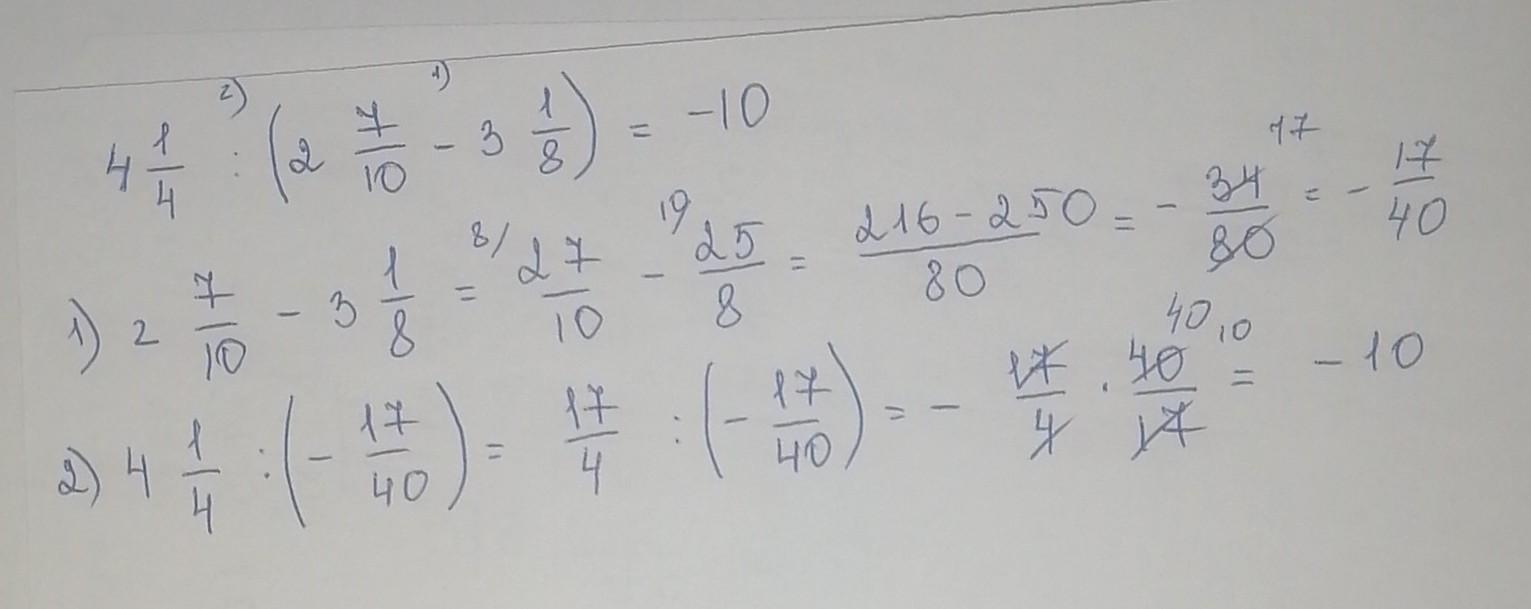 4 1/4 2) : (2 7/10 1) - 3 1/8) = -10
1) 2 7/10 - 3 1/8 = 8/ 27/10 - 10/ 25/8 = 216-250/80 = - 34/80 17 = - 17/40
2) 4 1/4 : (- 17/40) = 17/4 : (- 17/40) = - 17/4 · 40/17 40 10 = - 10